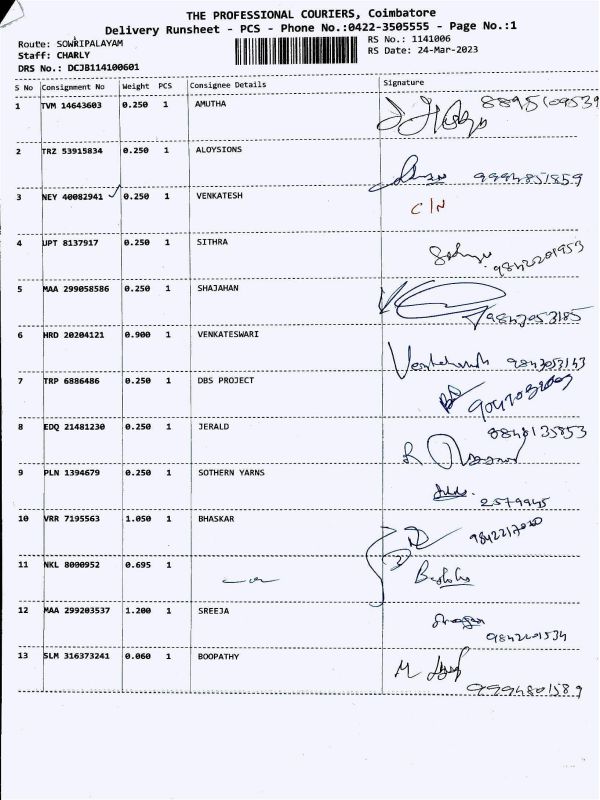 THE PROFESSIONAL COURIERS, Coimbatore
Delivery Runsheet - PCS - Phone No.:0422-3505555 - Page No.:1
Route: SOWRIPALAYAM RS No.: 1141006
Staff: CHARLY RS Date: 24-Mar-2023
DRS No.: DCJB114100601
S No Consignment No Weight PCS Consignee Details Signature
1 TVM 14643603 0.250 1 AMUTHA 8895109539
2 TRZ 53915834 0.250 1 ALOYSIONS 9994851859
3 NEY 40082941 0.250 1 VENKATESH C/N
4 UPT 8137917 0.250 1 SITHRA 9842201953
5 MAA 299058586 0.250 1 SHAJAHAN 9843053185
6 HRD 20204121 0.900 1 VENKATESWARI 9843053143
7 TRP 6886486 0.250 1 DBS PROJECT
8 EDQ 21481230 0.250 1 JERALD 8848135853
9 PLN 1394679 0.250 1 SOTHERN YARNS 2579945
10 VRR 7195563 1.050 1 BHASKAR 9842217020
11 NKL 8000952 0.695 1
12 MAA 299203537 1.200 1 SREEJA 9842201534
13 SLM 316373241 0.060 1 BOOPATHY 9994801589